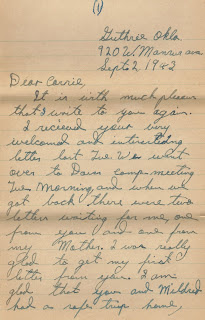 (1)
Guthrie Okla
920 W. Mansur ave
Sept 2 1942
Dear Carrie,
It is with much pleasure
that I write to you again.
I recieved your very
welcomed and interesting
letter last Tue. We went
over to Davis camp-meeting
Tue. Morning, and when we
got back there were two
letters waiting for me, one
from you and one from
my Mother. I was really
glad to get my first
letter from you. I am
glad that you and Mildred
had a safe trip home,